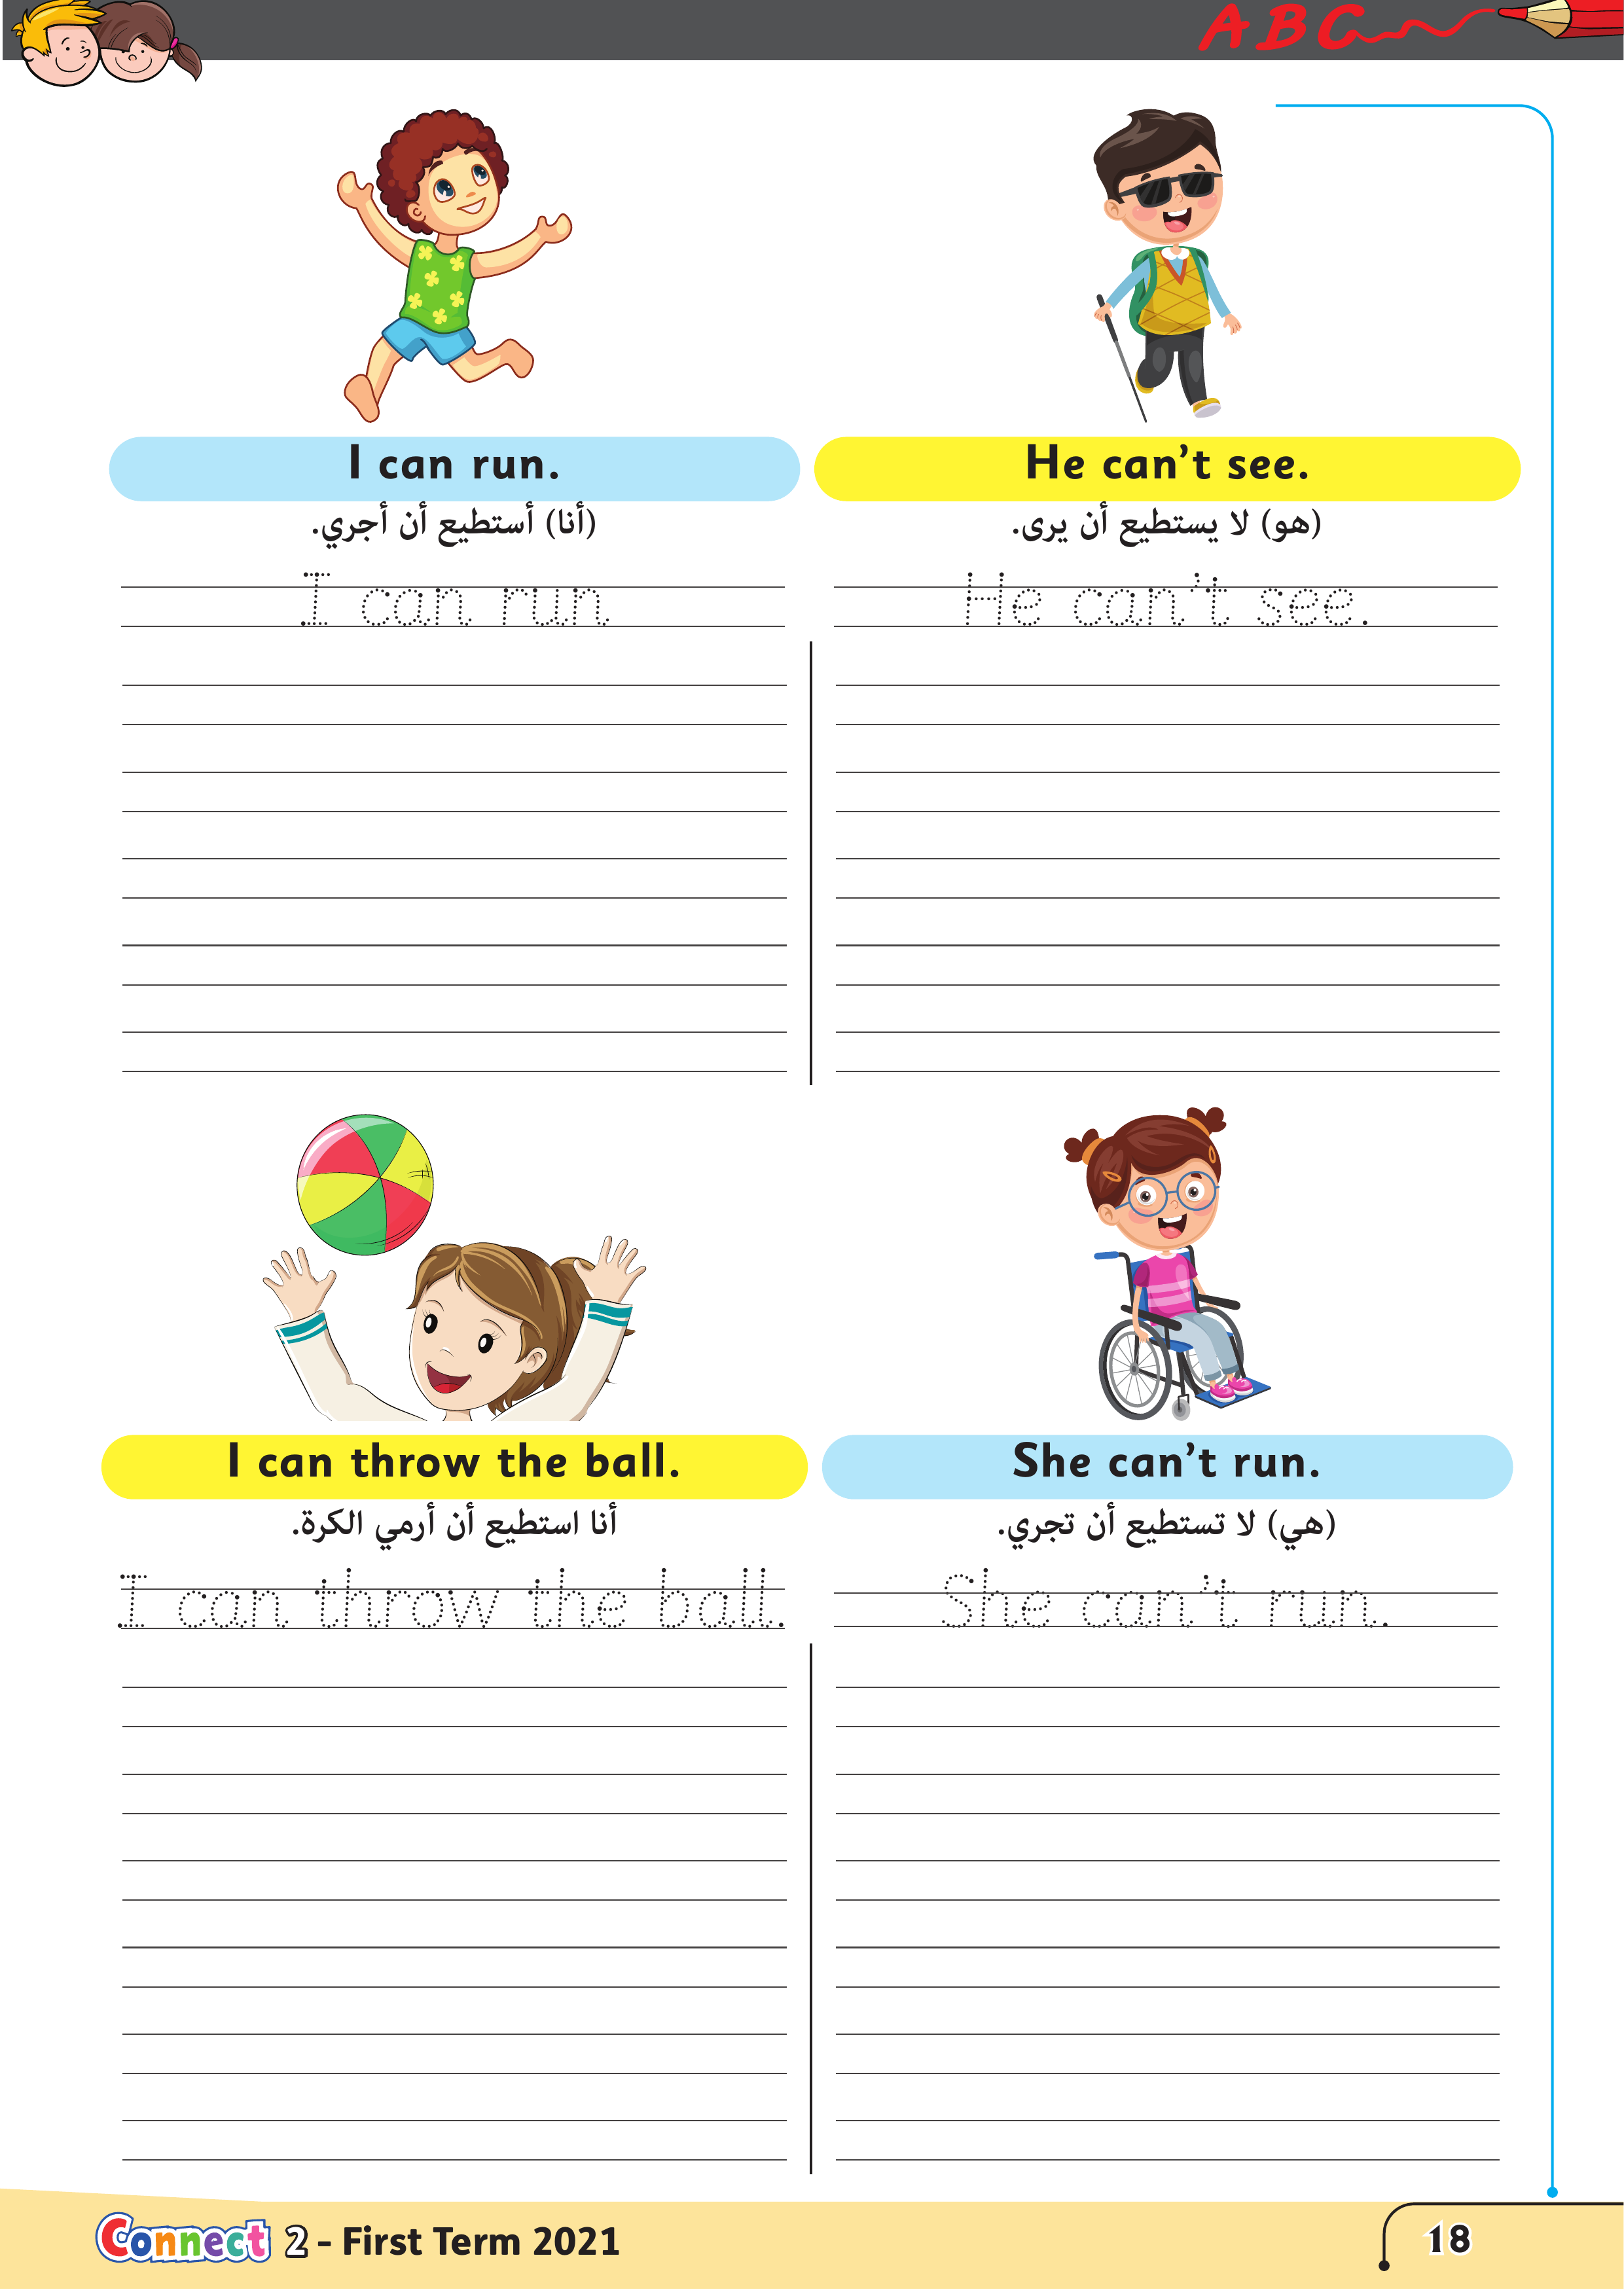 ABC
I can run.
(أنا) أستطيع أن أجري.
I can run
He can't see.
(هو) لا يستطيع أن يرى.
He can't see.
I can throw the ball.
أنا استطيع أن أرمي الكرة.
I can throw the ball.
She can't run.
(هي) لا تستطيع أن تجري.
She can't run.
Connect 2 - First Term 2021
18